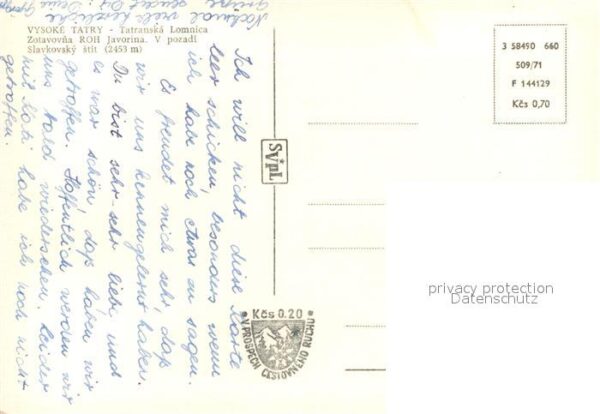 VYSOKÉ TATRY - Tatranská Lomnica
Zotavovňa ROH Javorina. V pozadí
Slavkovský štít (2453 m)
Ich will nicht diese Karte
leer schicken, besonders wenn
ich habe noch etwas zu sagen.
Es freudet mich sehr, daß
wir uns kennengelernt haben.
Du bist sehr-sehr liebe und
es war schön, daß haben wir
getroffen. Hoffentlich werden wir
uns bald wiedersehen. Leider
mit Kati habe ich noch nicht
getroffen.
Nochmal viele herzliche
Grüsse sendet Dir: Deine
SVpL
3 58490 660
509/71
F 144129
Kčs 0,70
Kčs 0.20
V PROSPECH CESTOVNÉHO RUCHU
privacy protection
Datenschutz